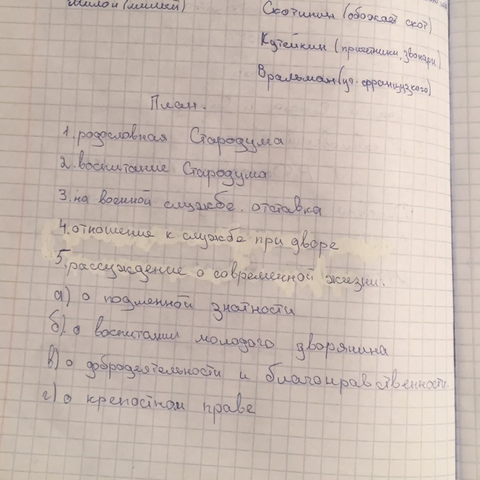 Милой (милый)
Скотинин (обожает скот)
Кутейкин (причетники, звонари)
Вральман (уч. французского)
План.
1. родословная Стародума
2. воспитание Стародума
3. на военной службе. отставка
4. отношение к службе при дворе
5. рассуждение о современной жизни.
а) о подменной знатности
б) о воспитании молодого дворянина
в) о добродетельности и благонравственности
г) о крепостном праве